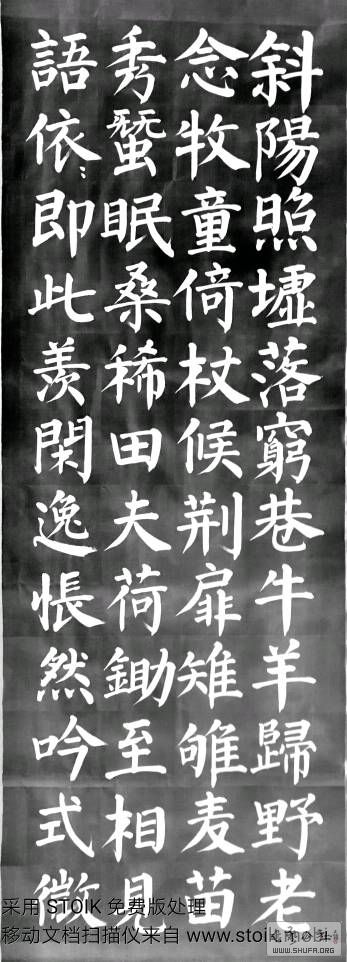 斜陽照墟落窮巷牛羊歸野老
念牧童倚杖候荆扉雉雊麦苗
秀蠶眠桑稀田夫荷鋤至相見
語依〻即此羨閑逸悵然吟式微
采用 STOIK 免费版处理
移动文档扫描仪来自 www.stoik
www.SHUFA.ORG